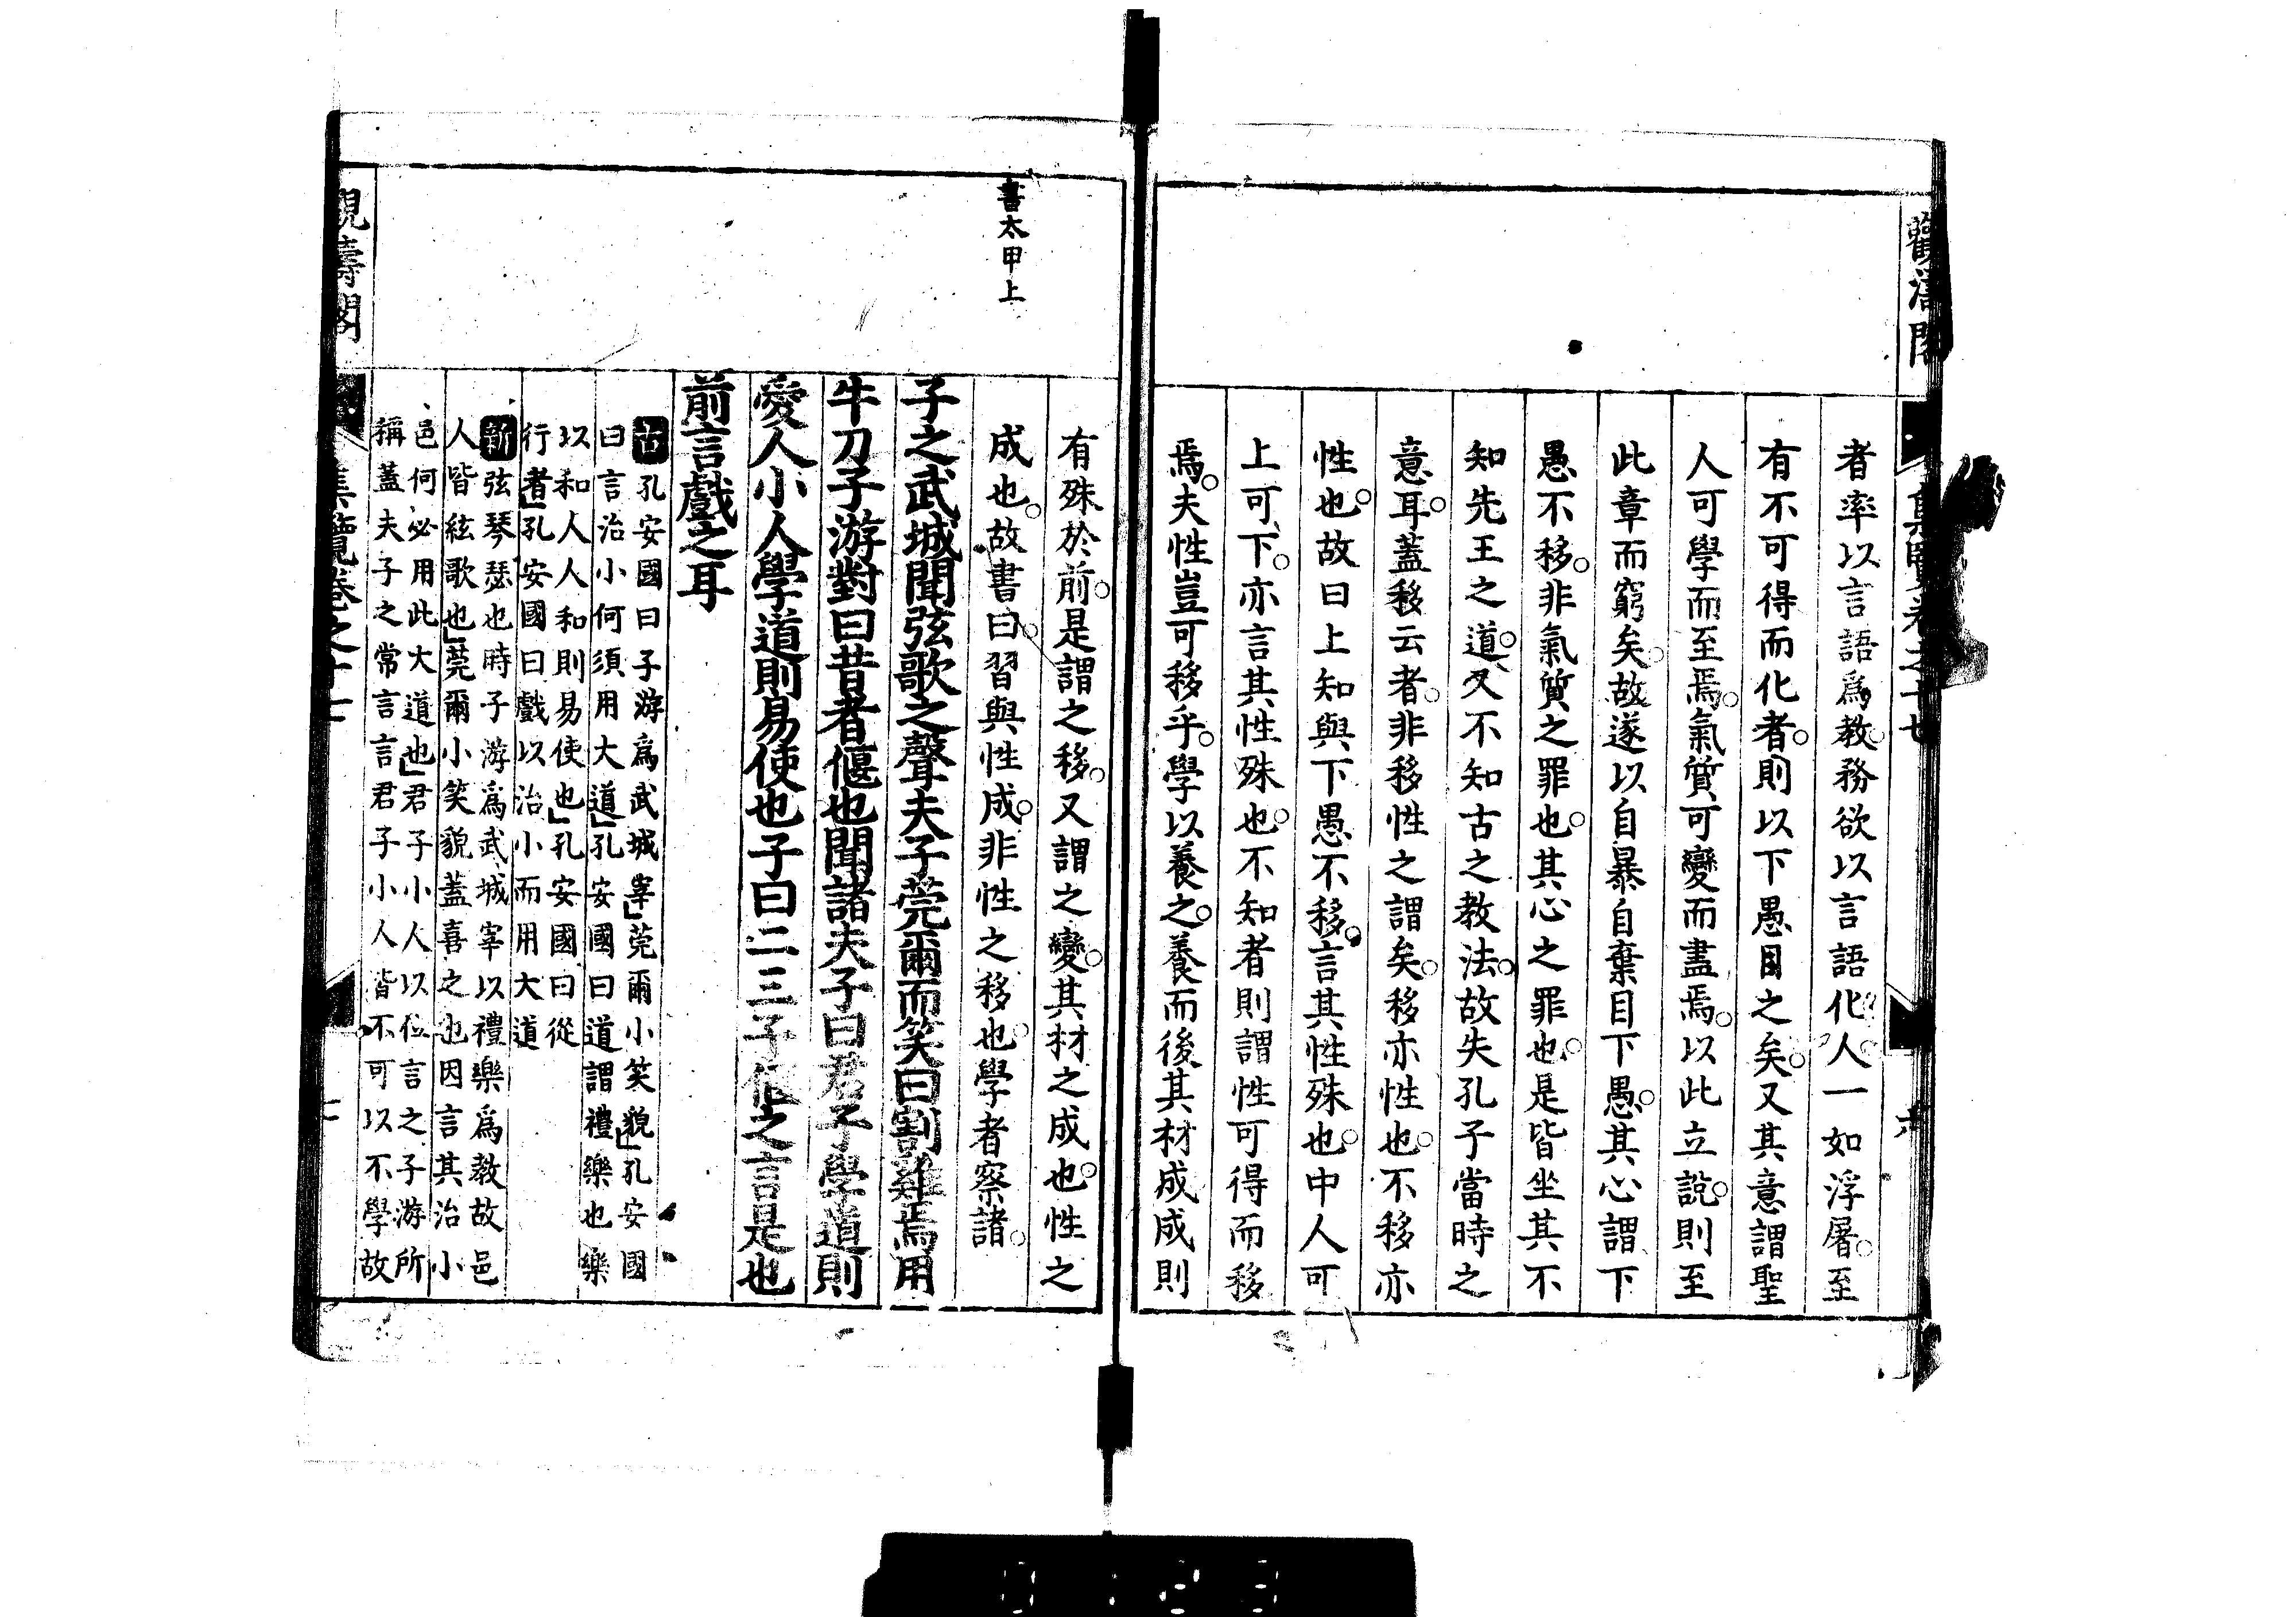 觀濤閣
集覽卷之十七
六
者率以言語爲教務欲以言語化人一如浮屠至
有不可得而化者則以下愚目之矣又其意謂聖
人可學而至焉氣質可變而盡焉以此立說則至
此章而窮矣故遂以自暴自棄目下愚其心謂下
愚不移非氣質之罪也其心之罪也是皆坐其不
知先王之道又不知古之教法故失孔子當時之
意耳蓋移云者非移性之謂矣移亦性也不移亦
性也故曰上知與下愚不移言其性殊也中人可
上可下亦言其性殊也不知者則謂性可得而移
焉夫性豈可移乎學以養之養而後其材成成則
書太甲上
有殊於前是謂之移又謂之變其材之成也性之
成也故書曰習與性成非性之移也學者察諸
子之武城聞弦歌之聲夫子莞爾而笑曰割雞焉用
牛刀子游對曰昔者偃也聞諸夫子曰君子學道則
愛人小人學道則易使也子曰二三子偃之言是也
前言戲之耳
古孔安國曰子游爲武城宰莞爾小笑貌孔安國
曰言治小何須用大道孔安國曰道謂禮樂也樂
以和人人和則易使也孔安國曰從
行者孔安國曰戲以治小而用大道
新弦琴瑟也時子游爲武城宰以禮樂爲教故邑
人皆絃歌也莞爾小笑貌蓋喜之也因言其治小
邑何必用此大道也君子小人以位言之子游所
稱蓋夫子之常言言君子小人皆不可以不學故
觀濤閣
集覽卷之十七